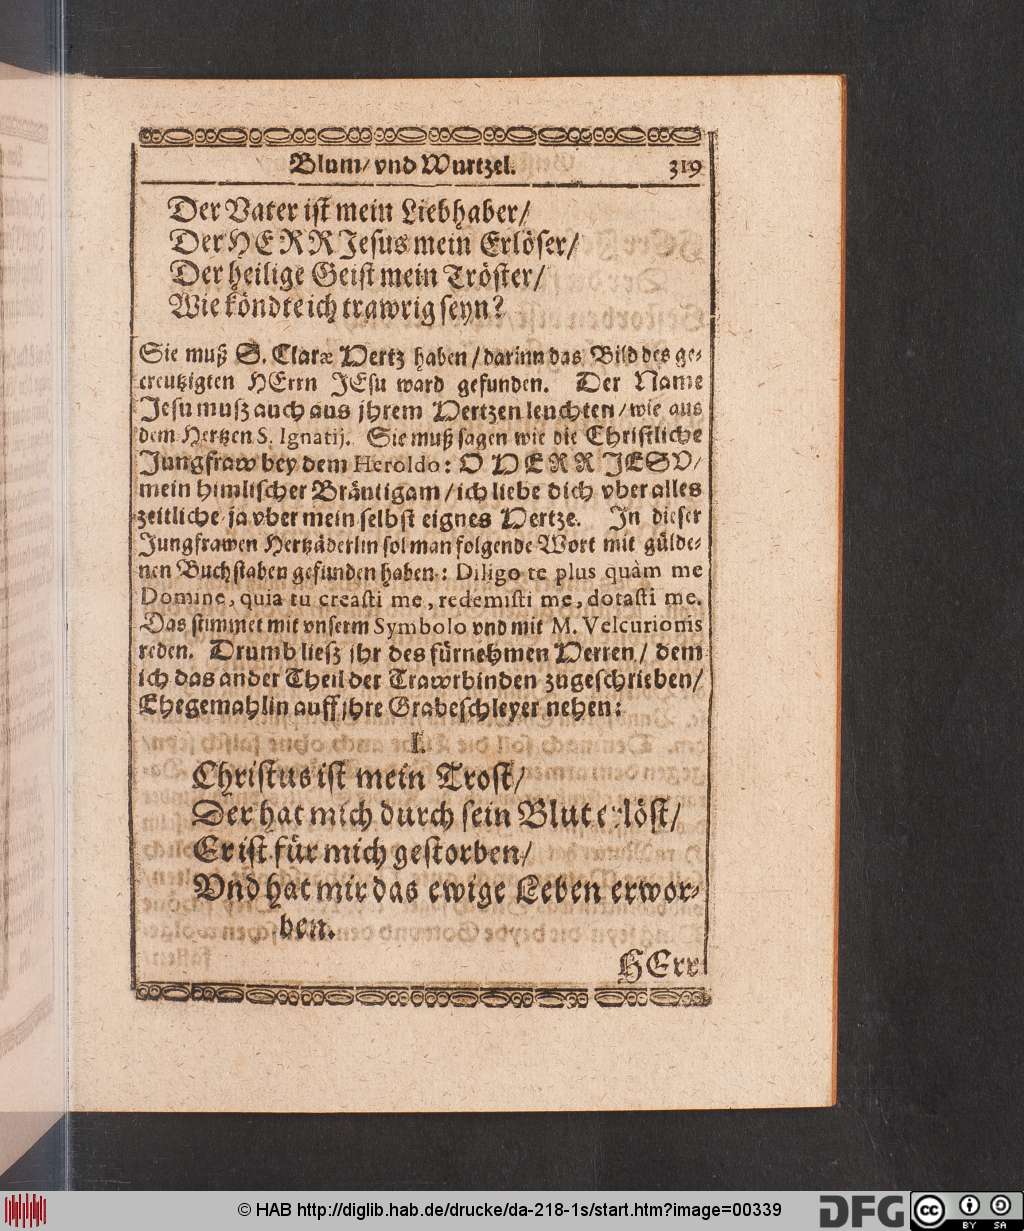 Blum/ vnd Wurtzel. 319
Der Vater ist mein Liebhaber/
Der HERR Jesus mein Erlöser/
Der heilige Geist mein Tröster/
Wie köndte ich trawrig seyn?
Sie muß S. Claræ Hertz haben/ darinn das Bild des ge-
creutzigten HErrn JEsu ward gefunden. Der Name
Jesu muß auch aus jhrem Hertzen leuchten/ wie aus
dem Hertzen S. Ignatij. Sie muß sagen wie die Christliche
Jungfraw bey dem Heroldo: O HERR JESV/
mein himlischer Bräutigam/ ich liebe dich vber alles
zeitliche ja vber mein selbst eignes Hertze. In dieser
Jungfrawen Hertzäderlin sol man folgende Wort mit gülde-
nen Buchstaben gefunden haben: Diligo te plus quàm me
Domine, quia tu creasti me, redemisti me, dotasti me.
Das stimmet mit vnserm Symbolo vnd mit M. Velcurionis
reden. Drumb ließ jhr des fürnehmen Herren/ dem
ich das ander Theil der Trawrbinden zugeschrieben/
Ehegemahlin auff jhre Grabeschleyer nehen:
I.
Christus ist mein Trost/
Der hat mich durch sein Blut erlöst/
Er ist für mich gestorben/
Vnd hat mir das ewige Leben erwor-
ben.
HErr
© HAB http://diglib.hab.de/drucke/da-218-1s/start.htm?image=00339
DFG
cc
BY SA